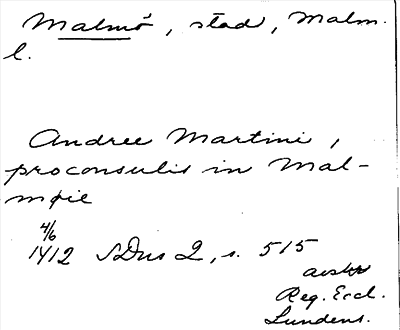 Malmö, stad, Malm.
l.
Andree Martini,
proconsulis in Mal-
møie
4/6
1412 SDns 2, s. 515
avskr
Reg. Eccl.
Lundens.